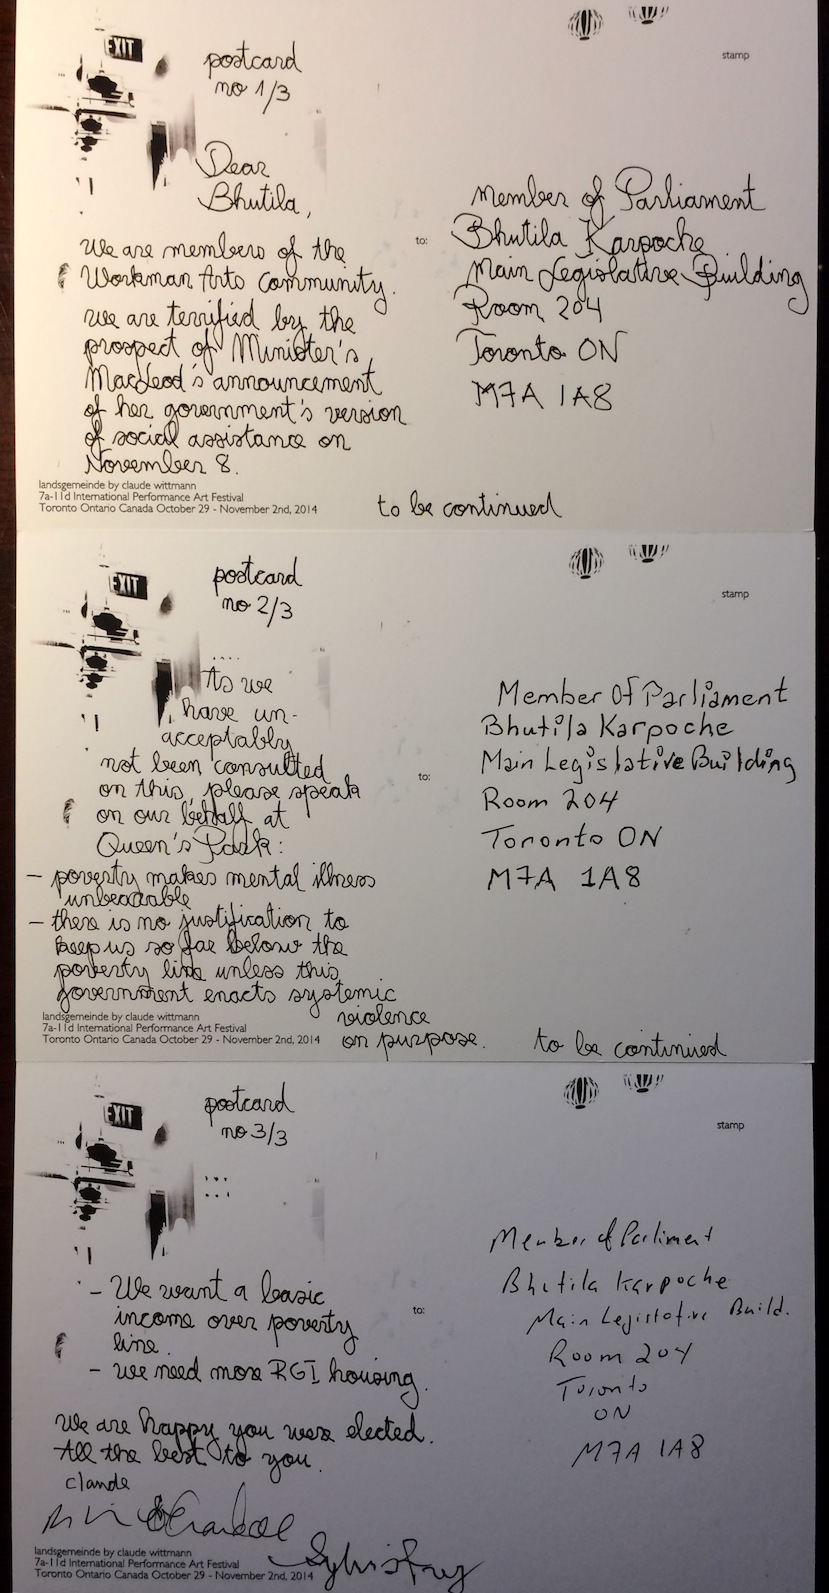 EXIT
postcard
no 1/3
stamp
Dear
Bhutila,
We are members of the
Workman Arts community.
we are terrified by the
prospect of Minister's
MacLeod's announcement
of her government's version
of social assistance on
November 8.
to:
Member of Parliament
Bhutila Karpoche
Main Legislative Building
Room 204
Toronto ON
M7A 1A8
landsgemeinde by claude wittmann
7a-11d International Performance Art Festival
Toronto Ontario Canada October 29 - November 2nd, 2014
to be continued
EXIT
postcard
no 2/3
stamp
....
As we
have un-
acceptably
not been consulted
on this, please speak
on our behalf at
Queen's Park:
- poverty makes mental illness
unbearable
- there is no justification to
keep us so far below the
poverty line unless this
government enacts systemic
violence
on purpose.
to:
Member Of Parliament
Bhutila Karpoche
Main Legislative Building
Room 204
Toronto ON
M7A 1A8
landsgemeinde by claude wittmann
7a-11d International Performance Art Festival
Toronto Ontario Canada October 29 - November 2nd, 2014
to be continued
EXIT
postcard
no 3/3
stamp
- We want a basic
income over poverty
line.
- we need more RGI housing.
We are happy you were elected.
All the best to you.
claude
to:
Member of Parliment
Bhutila Karpoche
Main Legislative Build.
Room 204
Toronto
ON
M7A 1A8
landsgemeinde by claude wittmann
7a-11d International Performance Art Festival
Toronto Ontario Canada October 29 - November 2nd, 2014